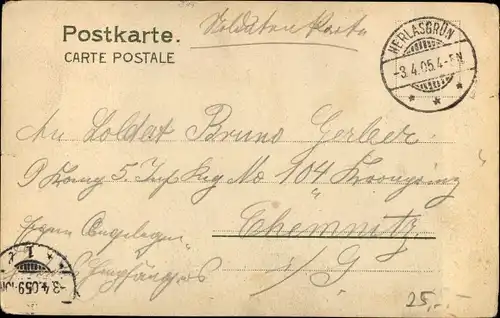 Soldaten Karte
Postkarte.
CARTE POSTALE
HERLASGRÜN
-3.4.05.4-5N
An Soldat Bruno Gerber
9 Komp 5. Inf Reg No 104 Kronprinz
Chemnitz
Eigene Angelegen
d Empfängers
i/S
-3.4.05 9-10N
25,-